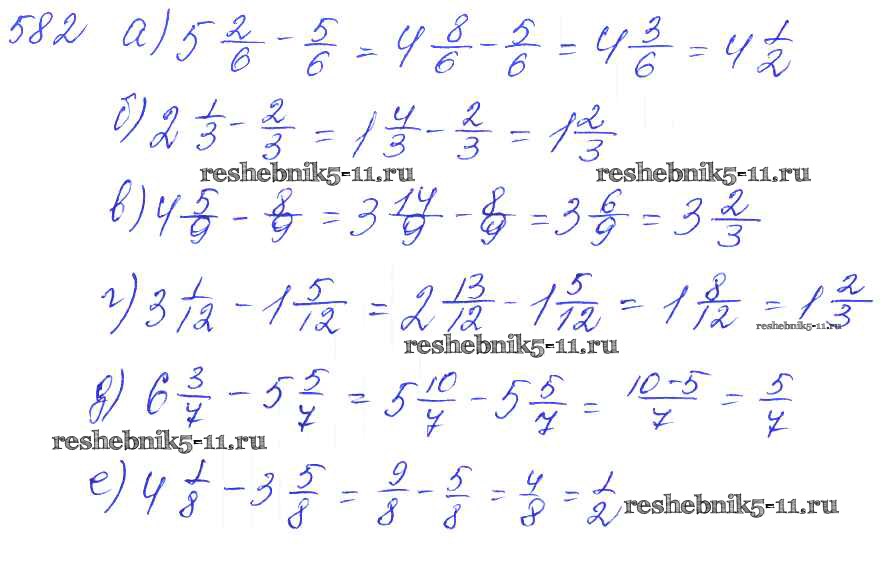 582 а) 5 2/6 - 5/6 = 4 8/6 - 5/6 = 4 3/6 = 4 1/2
б) 2 1/3 - 2/3 = 1 4/3 - 2/3 = 1 2/3
reshebnik5-11.ru reshebnik5-11.ru
в) 4 5/9 - 8/9 = 3 14/9 - 8/9 = 3 6/9 = 3 2/3
г) 3 1/12 - 1 5/12 = 2 13/12 - 1 5/12 = 1 8/12 = 1 2/3
reshebnik5-11.ru
reshebnik5-11.ru
д) 6 3/7 - 5 5/7 = 5 10/7 - 5 5/7 = (10-5)/7 = 5/7
reshebnik5-11.ru
е) 4 1/8 - 3 5/8 = 9/8 - 5/8 = 4/8 = 1/2
reshebnik5-11.ru